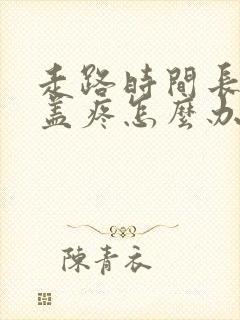 走路時間長
蓋疼怎麼办
陳青衣